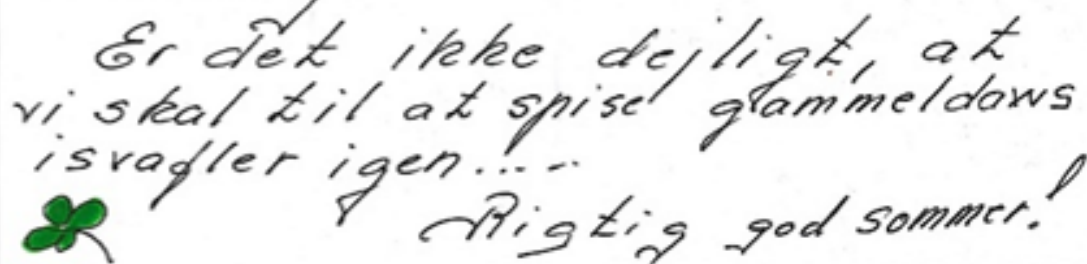 Er det ikke dejligt, at
vi skal til at spise glammeldaws
isvafler igen....
Rigtig god sommer!